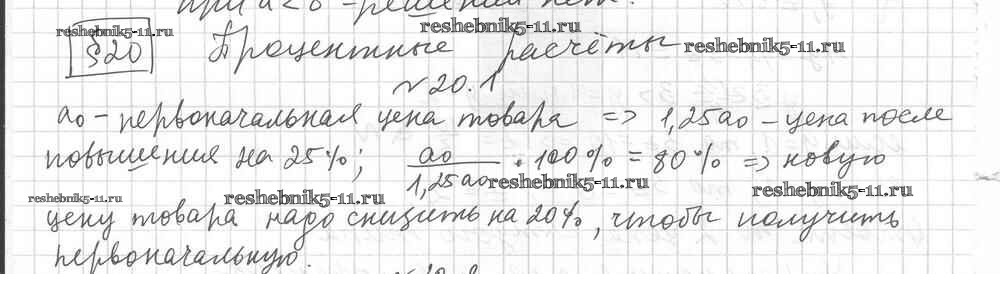 при a<0 - решений нет.
reshebnik5-11.ru reshebnik5-11.ru
§20 Процентные расчёты reshebnik5-11.ru
№20.1
a₀ – первоначальная цена товара => 1,25a₀ – цена после
повышения на 25%; a₀/1,25a₀ · 100% = 80% => новую
reshebnik5-11.ru reshebnik5-11.ru reshebnik5-11.ru reshebnik5-11.ru
цену товара надо снизить на 20%, чтобы получить
первоначальную.